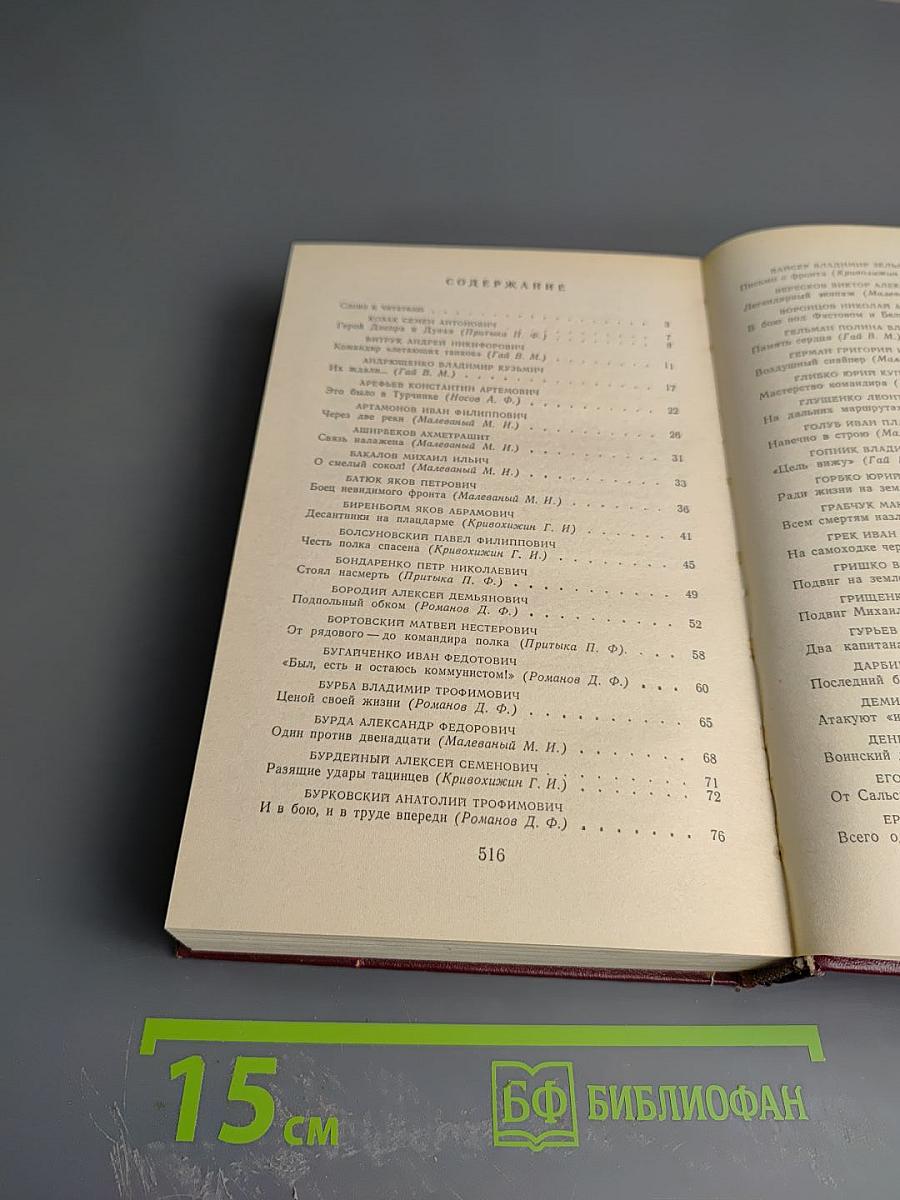 СОДЕРЖАНИЕ
Слово к читателю . . . . . . . . . . . 3
КОЗАК СЕМЕН АНТОНОВИЧ
Герой Днепра и Дуная (Притыка П. Ф.) . . . . . 7
ВИТРУК АНДРЕЙ НИКИФОРОВИЧ
Командир «летающих танков» (Гай В. М.)
АНДРЮЩЕНКО ВЛАДИМИР КУЗЬМИЧ 11
Их ждали... (Гай В. М.)
АРЕФЬЕВ КОНСТАНТИН АРТЕМОВИЧ 17
Это было в Турчинке (Носов А. Ф.)
АРТАМОНОВ ИВАН ФИЛИППОВИЧ 22
Через две реки (Малеваный М. И.)
АШИРБЕКОВ АХМЕТРАШИТ 26
Связь налажена (Малеваный М. И.)
БАКАЛОВ МИХАИЛ ИЛЬИЧ 31
О смелый сокол! (Малеваный М. И.)
БАТЮК ЯКОВ ПЕТРОВИЧ 33
Боец невидимого фронта (Малеваный М. И.)
БИРЕНБОЙМ ЯКОВ АБРАМОВИЧ 36
Десантники на плацдарме (Кривохижин Г. И)
БОЛСУНОВСКИЙ ПАВЕЛ ФИЛИППОВИЧ 41
Честь полка спасена (Кривохижин Г. И.)
БОНДАРЕНКО ПЕТР НИКОЛАЕВИЧ 45
Стоял насмерть (Притыка П. Ф.)
БОРОДИЙ АЛЕКСЕЙ ДЕМЬЯНОВИЧ 49
Подпольный обком (Романов Д. Ф.)
БОРТОВСКИЙ МАТВЕЙ НЕСТЕРОВИЧ 52
От рядового — до командира полка (Притыка П. Ф). . . . 58
БУГАЙЧЕНКО ИВАН ФЕДОТОВИЧ
«Был, есть и остаюсь коммунистом!» (Романов Д. Ф.) . . . 60
БУРБА ВЛАДИМИР ТРОФИМОВИЧ
Ценой своей жизни (Романов Д. Ф.) . . . . . . . 65
БУРДА АЛЕКСАНДР ФЕДОРОВИЧ
Один против двенадцати (Малеваный М. И.) . . . . . 68
БУРДЕЙНЫЙ АЛЕКСЕЙ СЕМЕНОВИЧ . . . . . . 71
Разящие удары тацинцев (Кривохижин Г. И.) . . . . . 72
БУРКОВСКИЙ АНАТОЛИЙ ТРОФИМОВИЧ
И в бою, и в труде впереди (Романов Д. Ф.) . . . . . . 76
516
ВАЙСЕР ВЛАДИМИР
Письмо с фронта (Кривохижин
ВЕРЕСКОВ ВИКТОР
Легендарный экипаж
ВОРОНЦОВ НИКОЛАЙ
В бою под Фастовом и
ГЕЛЬМАН ПОЛИНА
Память сердца (Гай В. М.)
ГЕРМАН ГРИГОРИЙ
Воздушный снайпер
ГЛИБКО ЮРИЙ
Мастерство командира
ГЛУЩЕНКО
На дальних маршрутах
ГОЛУБ ИВАН
Навечно в строю
ГОПНИК
«Цель вижу»
ГОРБКО ЮРИЙ
Ради жизни на
ГРАБЧУК
Всем смертям
ГРЕК ИВАН
На самоходке
ГРИШКО
Подвиг на
ГРИЩЕНК
Подвиг
ГУРЬЕВ
Два капитана
ДАРБИ
Последний б
ДЕМИ
Атакуют «и
ДЕНІ
Воинский
ЕГО
От Сальс
ЕР
Всего о
15 см
БФ БИБЛИОФАН